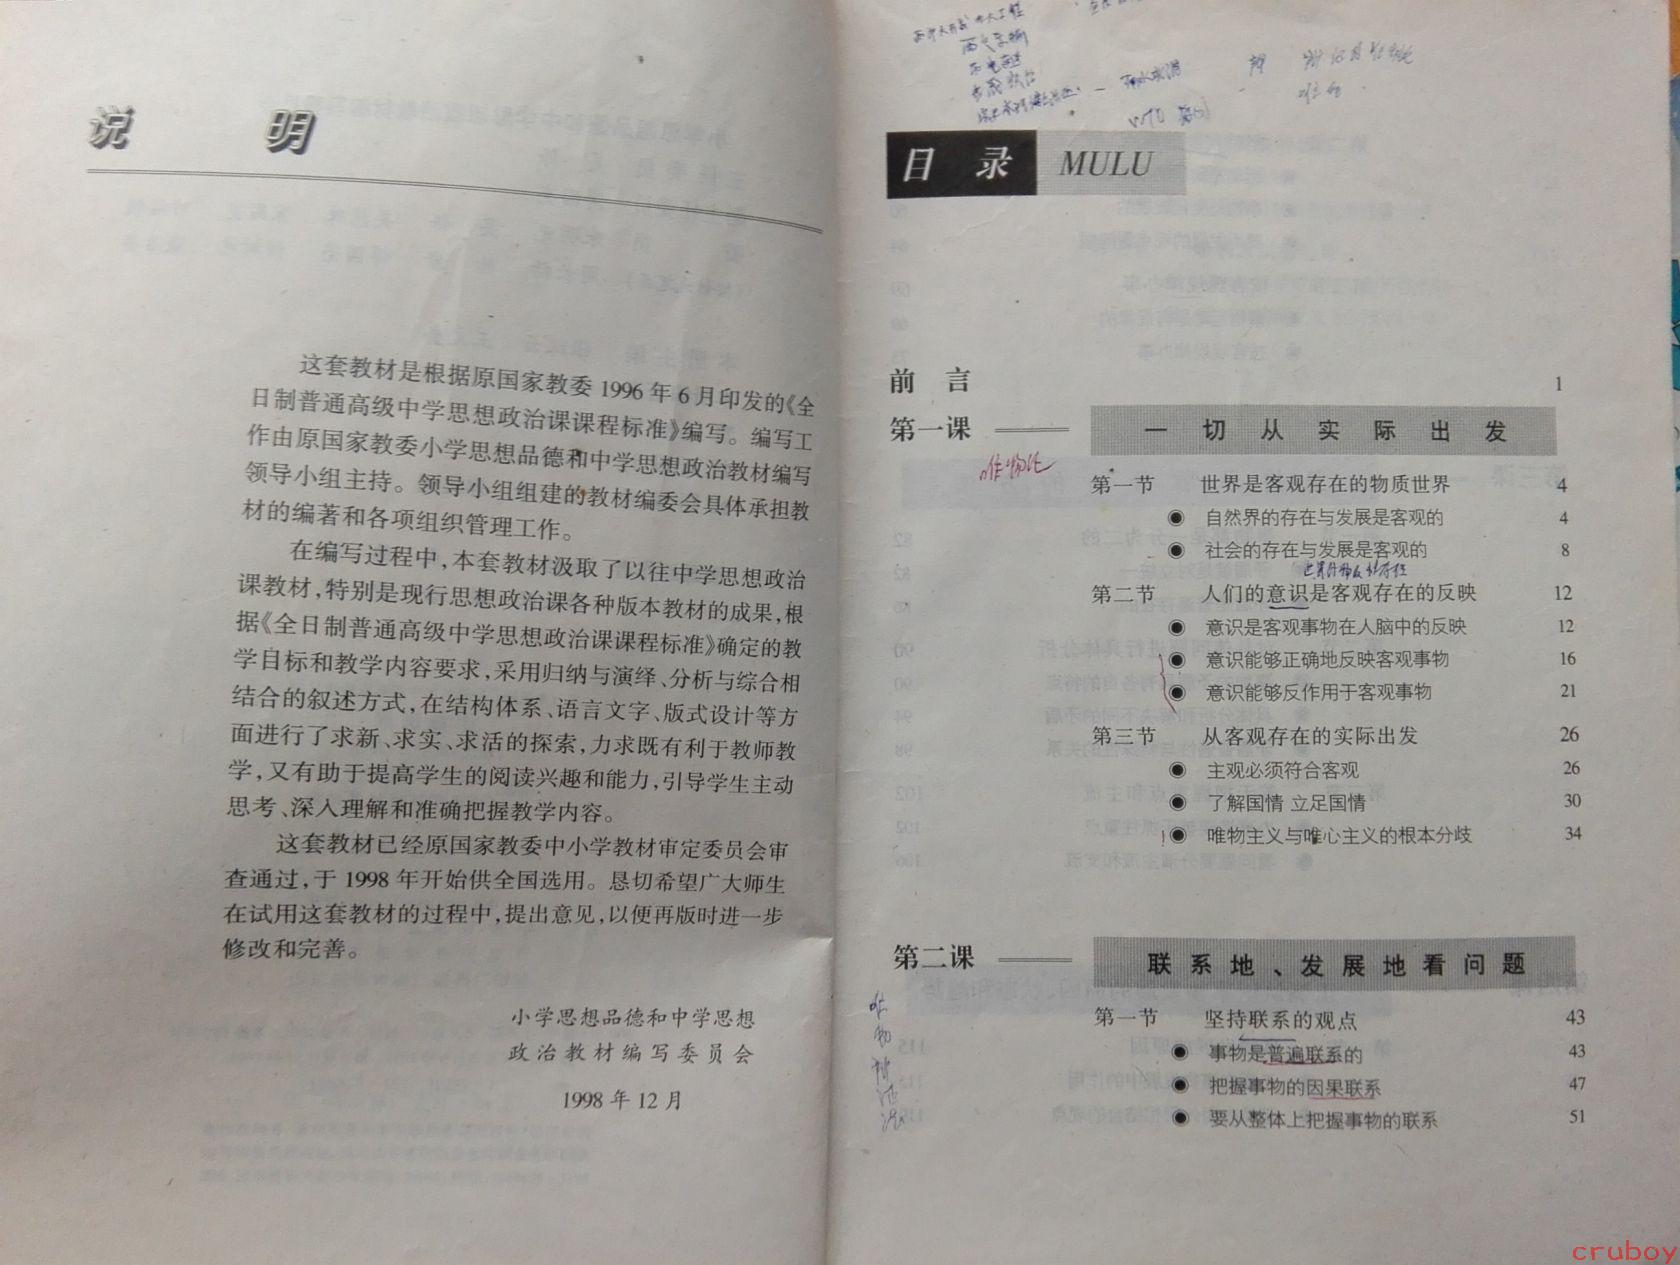 说 明
这套教材是根据原国家教委 1996 年 6 月印发的《全
日制普通高级中学思想政治课课程标准》编写。编写工
作由原国家教委小学思想品德和中学思想政治教材编写
领导小组主持。领导小组组建的教材编委会具体承担教
材的编著和各项组织管理工作。
在编写过程中,本套教材汲取了以往中学思想政治
课教材,特别是现行思想政治课各种版本教材的成果,根
据《全日制普通高级中学思想政治课课程标准》确定的教
学目标和教学内容要求,采用归纳与演绎、分析与综合相
结合的叙述方式,在结构体系、语言文字、版式设计等方
面进行了求新、求实、求活的探索,力求既有利于教师教
学,又有助于提高学生的阅读兴趣和能力,引导学生主动
思考、深入理解和准确把握教学内容。
这套教材已经原国家教委中小学教材审定委员会审
查通过,于 1998 年开始供全国选用。恳切希望广大师生
在试用这套教材的过程中,提出意见,以便再版时进一步
修改和完善。
小学思想品德和中学思想
政治教材编写委员会
1998 年 12 月
目 录 MULU
前 言 1
第一课 一切从实际出发
唯物论
第一节 世界是客观存在的物质世界 4
◉ 自然界的存在与发展是客观的 4
◉ 社会的存在与发展是客观的 8
第二节 人们的意识是客观存在的反映 12
◉ 意识是客观事物在人脑中的反映 12
◉ 意识能够正确地反映客观事物 16
◉ 意识能够反作用于客观事物 21
第三节 从客观存在的实际出发 26
◉ 主观必须符合客观 26
◉ 了解国情 立足国情 30
◉ 唯物主义与唯心主义的根本分歧 34
第二课 联系地、发展地看问题
唯物辩证法
第一节 坚持联系的观点 43
◉ 事物是普遍联系的 43
◉ 把握事物的因果联系 47
◉ 要从整体上把握事物的联系 51
cruboy